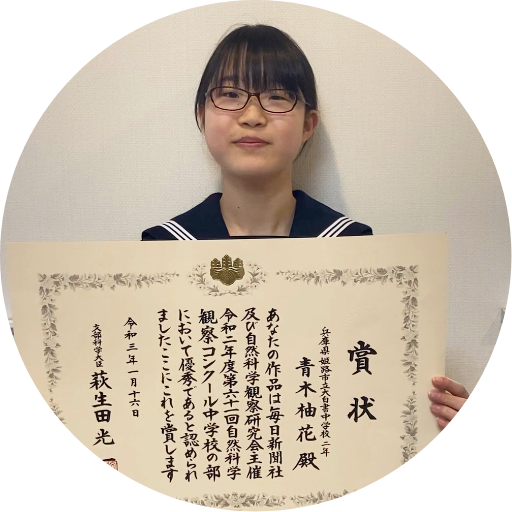 賞状
兵庫県 姫路市立大白書中学校 二年
青木柚花 殿
あなたの作品は毎日新聞社
及び自然科学観察研究会主催
令和二年度第六十一回自然科学
観察コンクール中学校の部
において優秀であると認められ
ましたここにこれを賞します
令和三年一月十六日
文部科学大臣 萩生田光